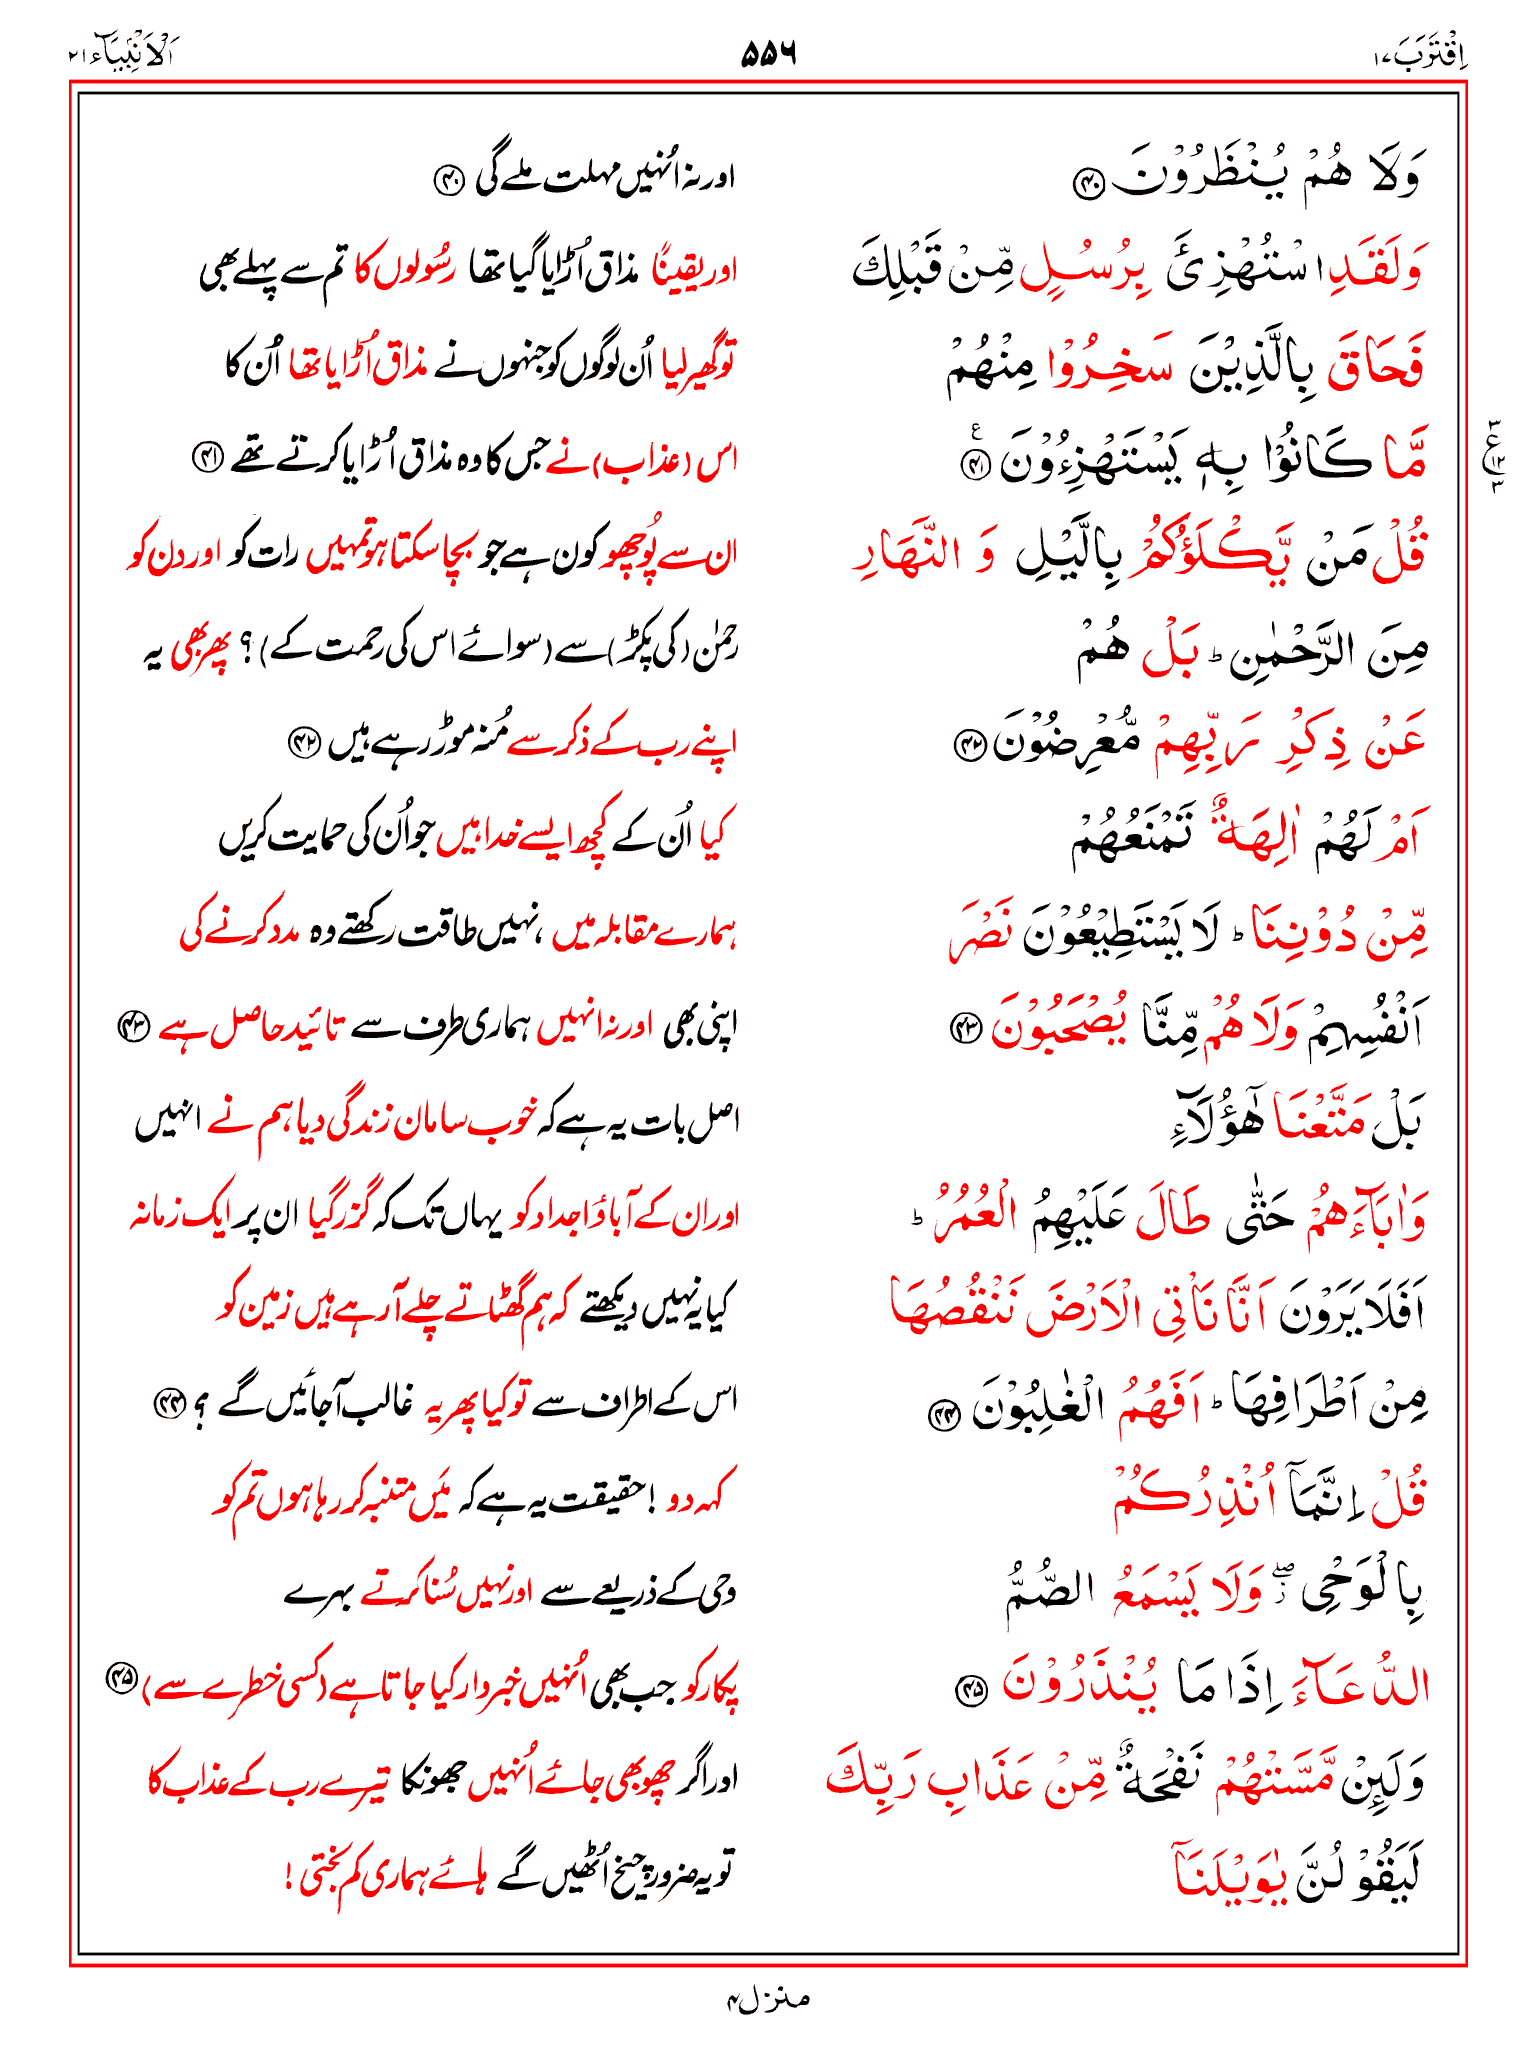 اِقْتَرَبَ ۱۷
۵۵۶
اَلْاَنْۢبِیَآء ۲۱
وَلَا هُمْ یُنْظَرُوْنَ ﴿۴۰﴾
اور نہ اُنہیں مہلت ملے گی ﴿۴۰﴾
وَلَقَدِ اسْتُهْزِئَ بِرُسُلٍ مِّنْ قَبْلِكَ
اور یقیناً مذاق اُڑایا گیا تھا رسُولوں کا تم سے پہلے بھی
فَحَاقَ بِالَّذِیْنَ سَخِرُوْا مِنْهُمْ
تو گھیر لیا اُن لوگوں کو جنہوں نے مذاق اُڑایا تھا اُن کا
مَّا كَانُوْا بِهٖ یَسْتَهْزِءُوْنَ ﴿۴۱﴾ ع
اس (عذاب) نے جس کا وہ مذاق اُڑایا کرتے تھے ﴿۴۱﴾
۳ ع ۱۲ ۳
قُلْ مَنْ یَّكْلَؤُكُمْ بِالَّیْلِ وَ النَّهَارِ
ان سے پُوچھو کون ہے جو بچا سکتا ہو تمہیں رات کو اور دن کو
مِنَ الرَّحْمٰنِ ؕ بَلْ هُمْ
رحمٰن (کی پکڑ) سے (سوائے اس کی رحمت کے)؟ پھر بھی یہ
عَنْ ذِكْرِ رَبِّهِمْ مُّعْرِضُوْنَ ﴿۴۲﴾
اپنے رب کے ذکر سے مُنہ موڑ رہے ہیں ﴿۴۲﴾
اَمْ لَهُمْ اٰلِهَةٌ تَمْنَعُهُمْ
کیا اُن کے کچھ ایسے خدا ہیں جو اُن کی حمایت کریں
مِّنْ دُوْنِنَا ؕ لَا یَسْتَطِیْعُوْنَ نَصْرَ
ہمارے مقابلہ میں، نہیں طاقت رکھتے وہ مدد کرنے کی
اَنْفُسِهِمْ وَلَا هُمْ مِّنَّا یُصْحَبُوْنَ ﴿۴۳﴾
اپنی بھی اور نہ انہیں ہماری طرف سے تائید حاصل ہے ﴿۴۳﴾
بَلْ مَتَّعْنَا هٰۤؤُلَآءِ
اصل بات یہ ہے کہ خوب سامان زندگی دیا ہم نے انہیں
وَاٰبَآءَهُمْ حَتّٰی طَالَ عَلَیْهِمُ الْعُمُرُ ؕ
اور ان کے آباؤ اجداد کو یہاں تک کہ گزر گیا ان پر ایک زمانہ
اَفَلَا یَرَوْنَ اَنَّا نَاْتِی الْاَرْضَ نَنْقُصُهَا
کیا یہ نہیں دیکھتے کہ ہم گھٹاتے چلے آ رہے ہیں زمین کو
مِنْ اَطْرَافِهَا ؕ اَفَهُمُ الْغٰلِبُوْنَ ﴿۴۴﴾
اس کے اطراف سے تو کیا پھر یہ غالب آ جائیں گے ؟ ﴿۴۴﴾
قُلْ اِنَّمَاۤ اُنْذِرُكُمْ
کہہ دو ! حقیقت یہ ہے کہ میَں متنبہ کر رہا ہوں تم کو
بِالْوَحْیِ ۖ٘ وَلَا یَسْمَعُ الصُّمُّ
وحی کے ذریعے سے اور نہیں سُنا کرتے بہرے
الدُّعَآءَ اِذَا مَا یُنْذَرُوْنَ ﴿۴۵﴾
پکار کو جب بھی اُنہیں خبردار کیا جاتا ہے (کسی خطرے سے) ﴿۴۵﴾
وَلَئِنْ مَّسَّتْهُمْ نَفْحَةٌ مِّنْ عَذَابِ رَبِّكَ
اور اگر چھو بھی جائے اُنہیں جھونکا تیرے رب کے عذاب کا
لَیَقُوْلُنَّ یٰوَیْلَنَاۤ
تو یہ ضرور چیخ اُٹھیں گے ہائے ہماری کم بختی !
منزل ۴